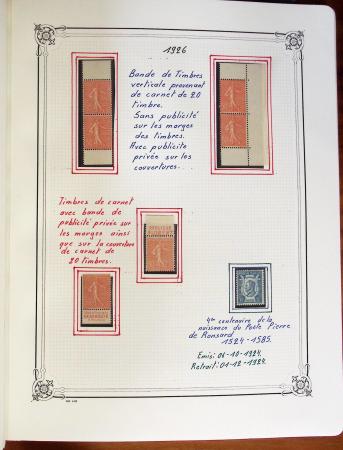 1926
Bande de Timbres
verticale provenant
de carnet de 20
timbre.
Sans publicité
sur les marges
des timbres.
Avec publicité
privée sur les
couvertures...
Timbres de carnet
avec bande de
publicité privée sur
les marges ainsi
que sur la couverture
de carnet de
20 timbres.
4me centenaire de la
naissance du Poète Pierre
de Ronsard
1524-1585.
Emis: 06-10-1924.
Retrait: 01-12-1924.